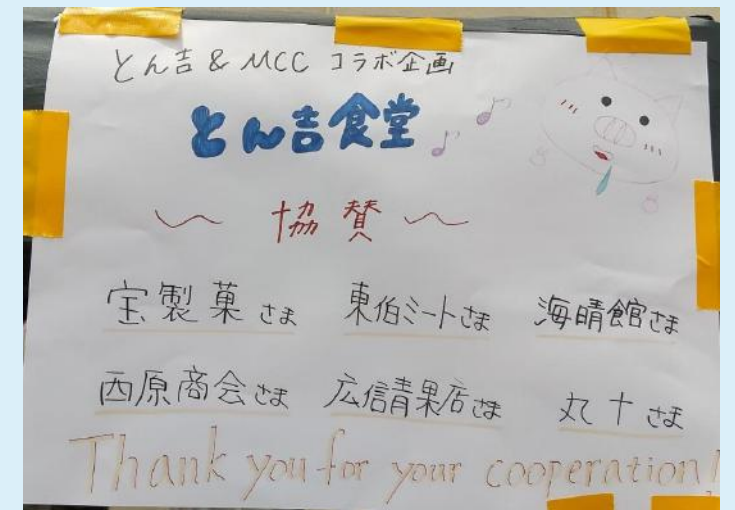 とん吉 & MCC コラボ企画
とん吉食堂♪♪
〜 協賛 〜
宝製菓さま 東伯ミートさま 海晴館さま
西原商会さま 広信青果店さま 丸十さま
Thank you for your cooperation!